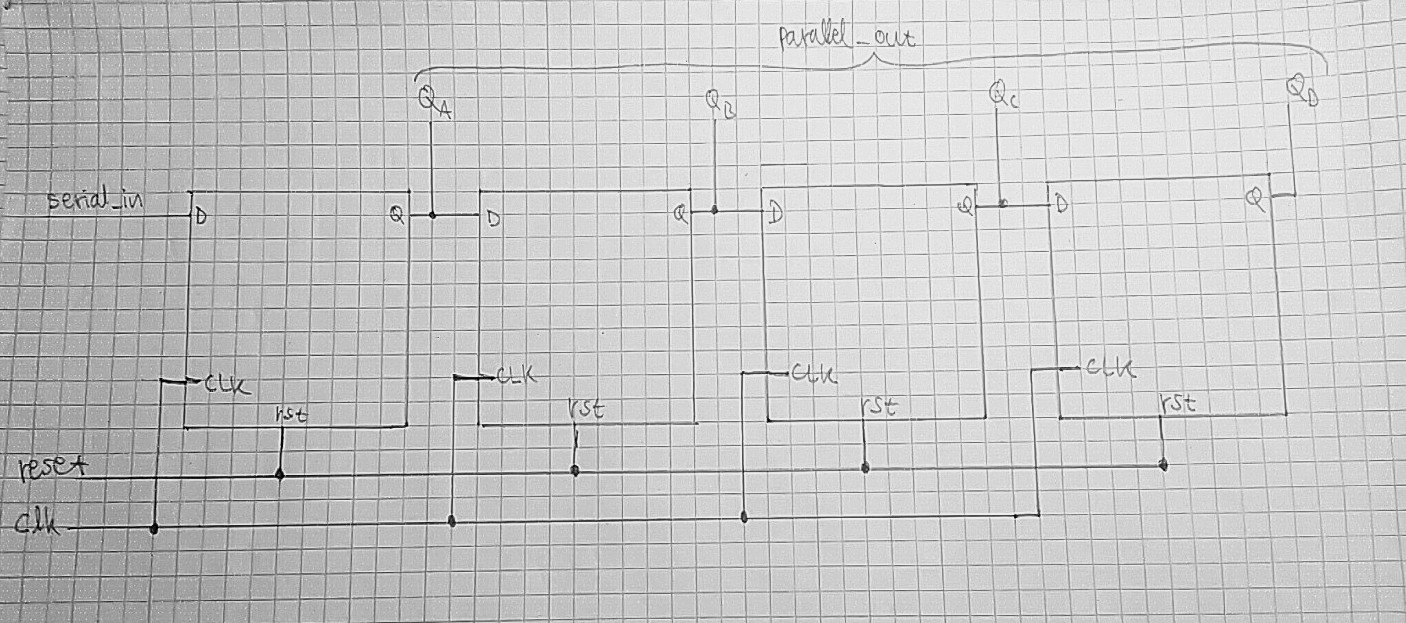 parallel_out
QA QB QC QD
serial_in D Q D Q D Q D Q
CLK CLK CLK CLK
rst rst rst rst
reset
clk